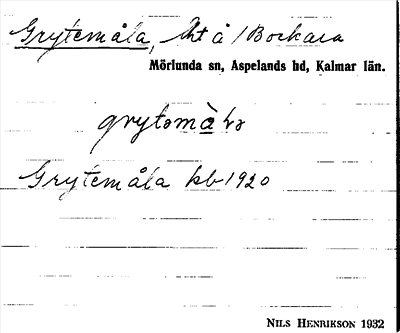 Grytemåla, lht å / Bockara
Mörlunda sn, Aspelands hd, Kalmar län.
Grytemåla kb 1920
NILS HENRIKSON 1932